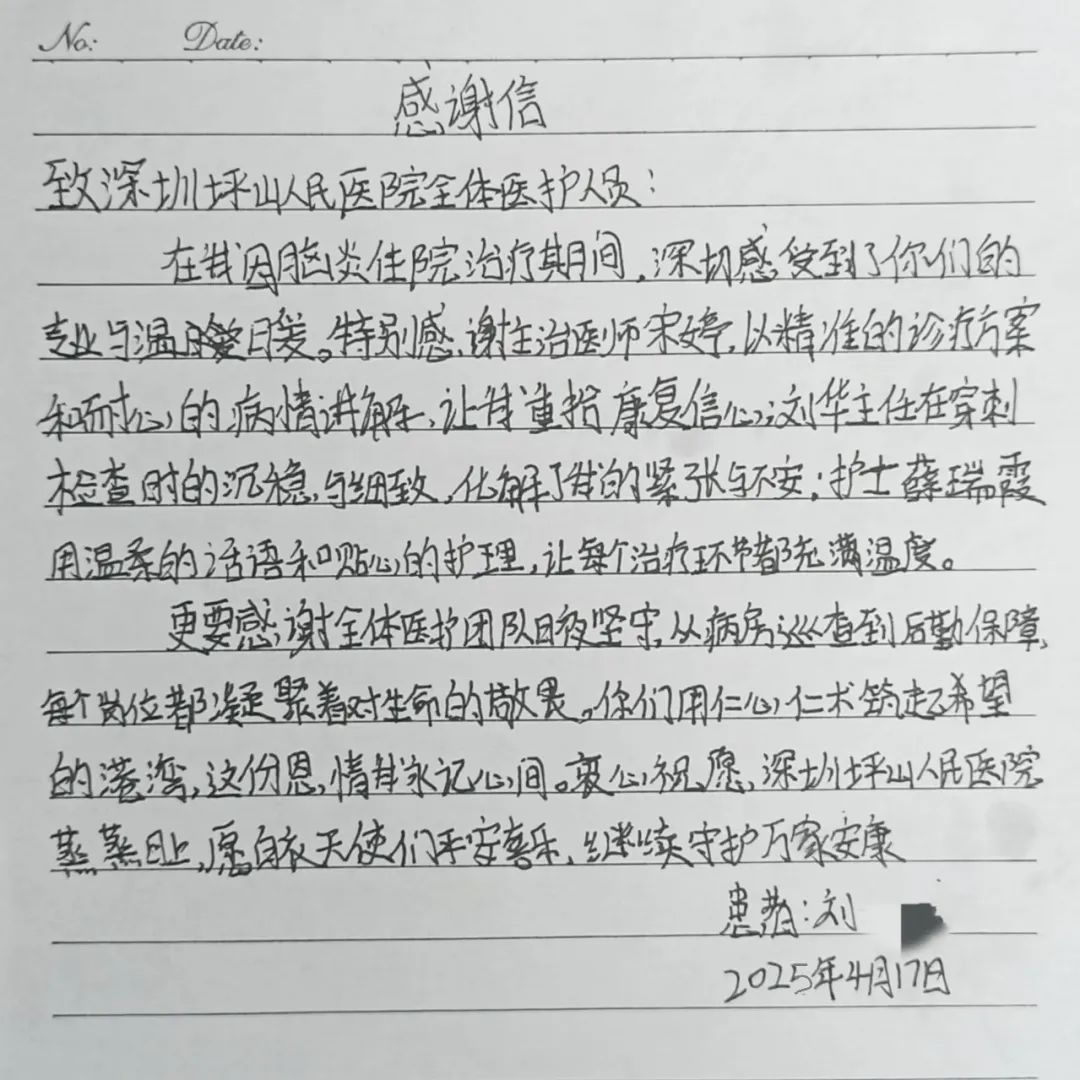 No: Date:
感谢信
致深圳坪山人民医院全体医护人员:
在我因脑炎住院治疗期间,深切感受到了你们的
专业与温暖。特别感谢主治医师宋婷,以精准的诊疗方案
和耐心的病情讲解,让我重拾康复信心;刘华主任在穿刺
检查时的沉稳与细致,化解了我的紧张与不安;护士薛瑞霞
用温柔的话语和贴心的护理,让每个治疗环节都充满温度。
更要感谢全体医护团队日夜坚守,从病房巡查到后勤保障,
每个岗位都凝聚着对生命的敬畏。你们用仁心仁术筑起希望
的港湾,这份恩情我永记心间。衷心祝愿,深圳坪山人民医院
蒸蒸日上,愿白衣天使们平安喜乐,继续守护万家安康
患者:刘
2025年4月17日